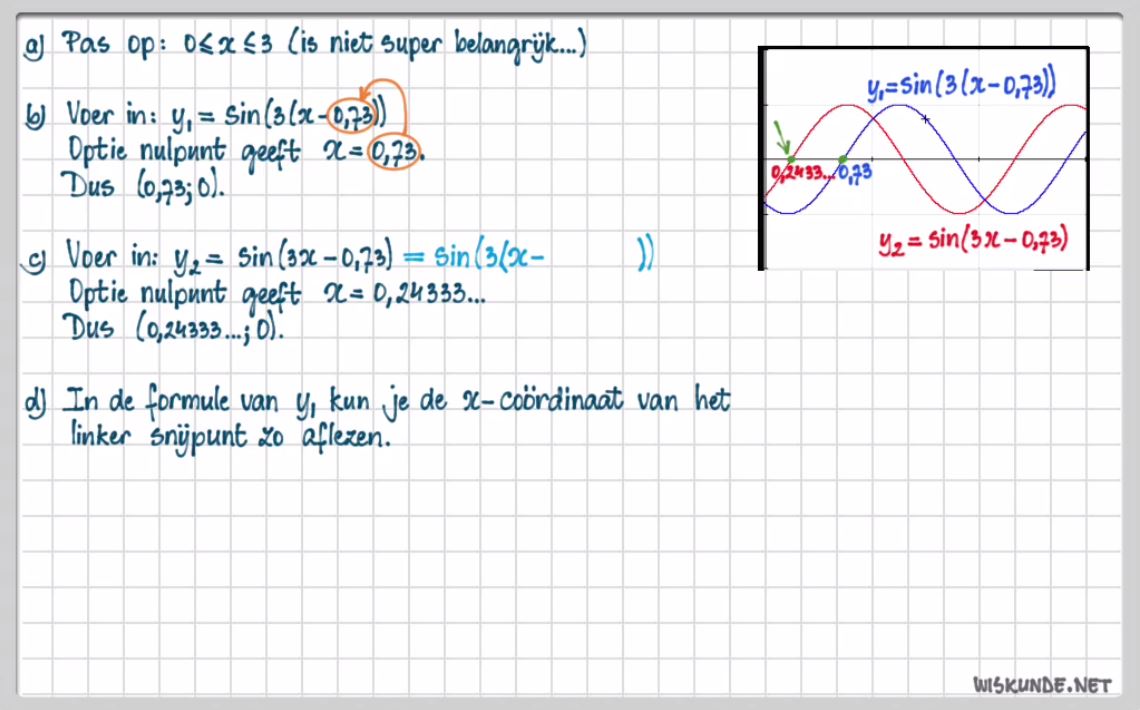 a) Pas op: 0 ≤ x ≤ 3 (is niet super belangrijk...)
b) Voer in: y₁ = sin(3(x-0,73))
Optie nulpunt geeft x = 0,73.
Dus (0,73; 0).
c) Voer in: y₂ = sin(3x-0,73) = sin(3(x- ))
Optie nulpunt geeft x = 0,24333...
Dus (0,24333...; 0).
d) In de formule van y₁ kun je de x-coördinaat van het
linker snijpunt zo aflezen.
y₁=sin(3(x-0,73))
0,2433... 0,73
y₂=sin(3x-0,73)
WISKUNDE.NET